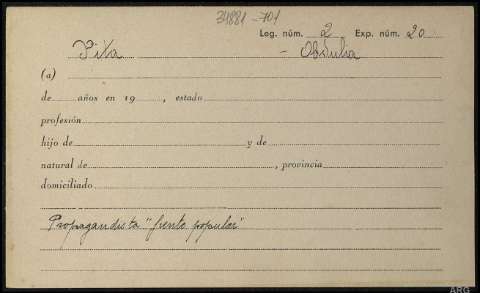 34881-701
Leg. núm. 2 Exp. núm. 20
Pita - Obdulia
(a)
de años en 19 , estado
profesión
hijo de y de
natural de , provincia
domiciliado
Propagandista "frente popular"
ARG